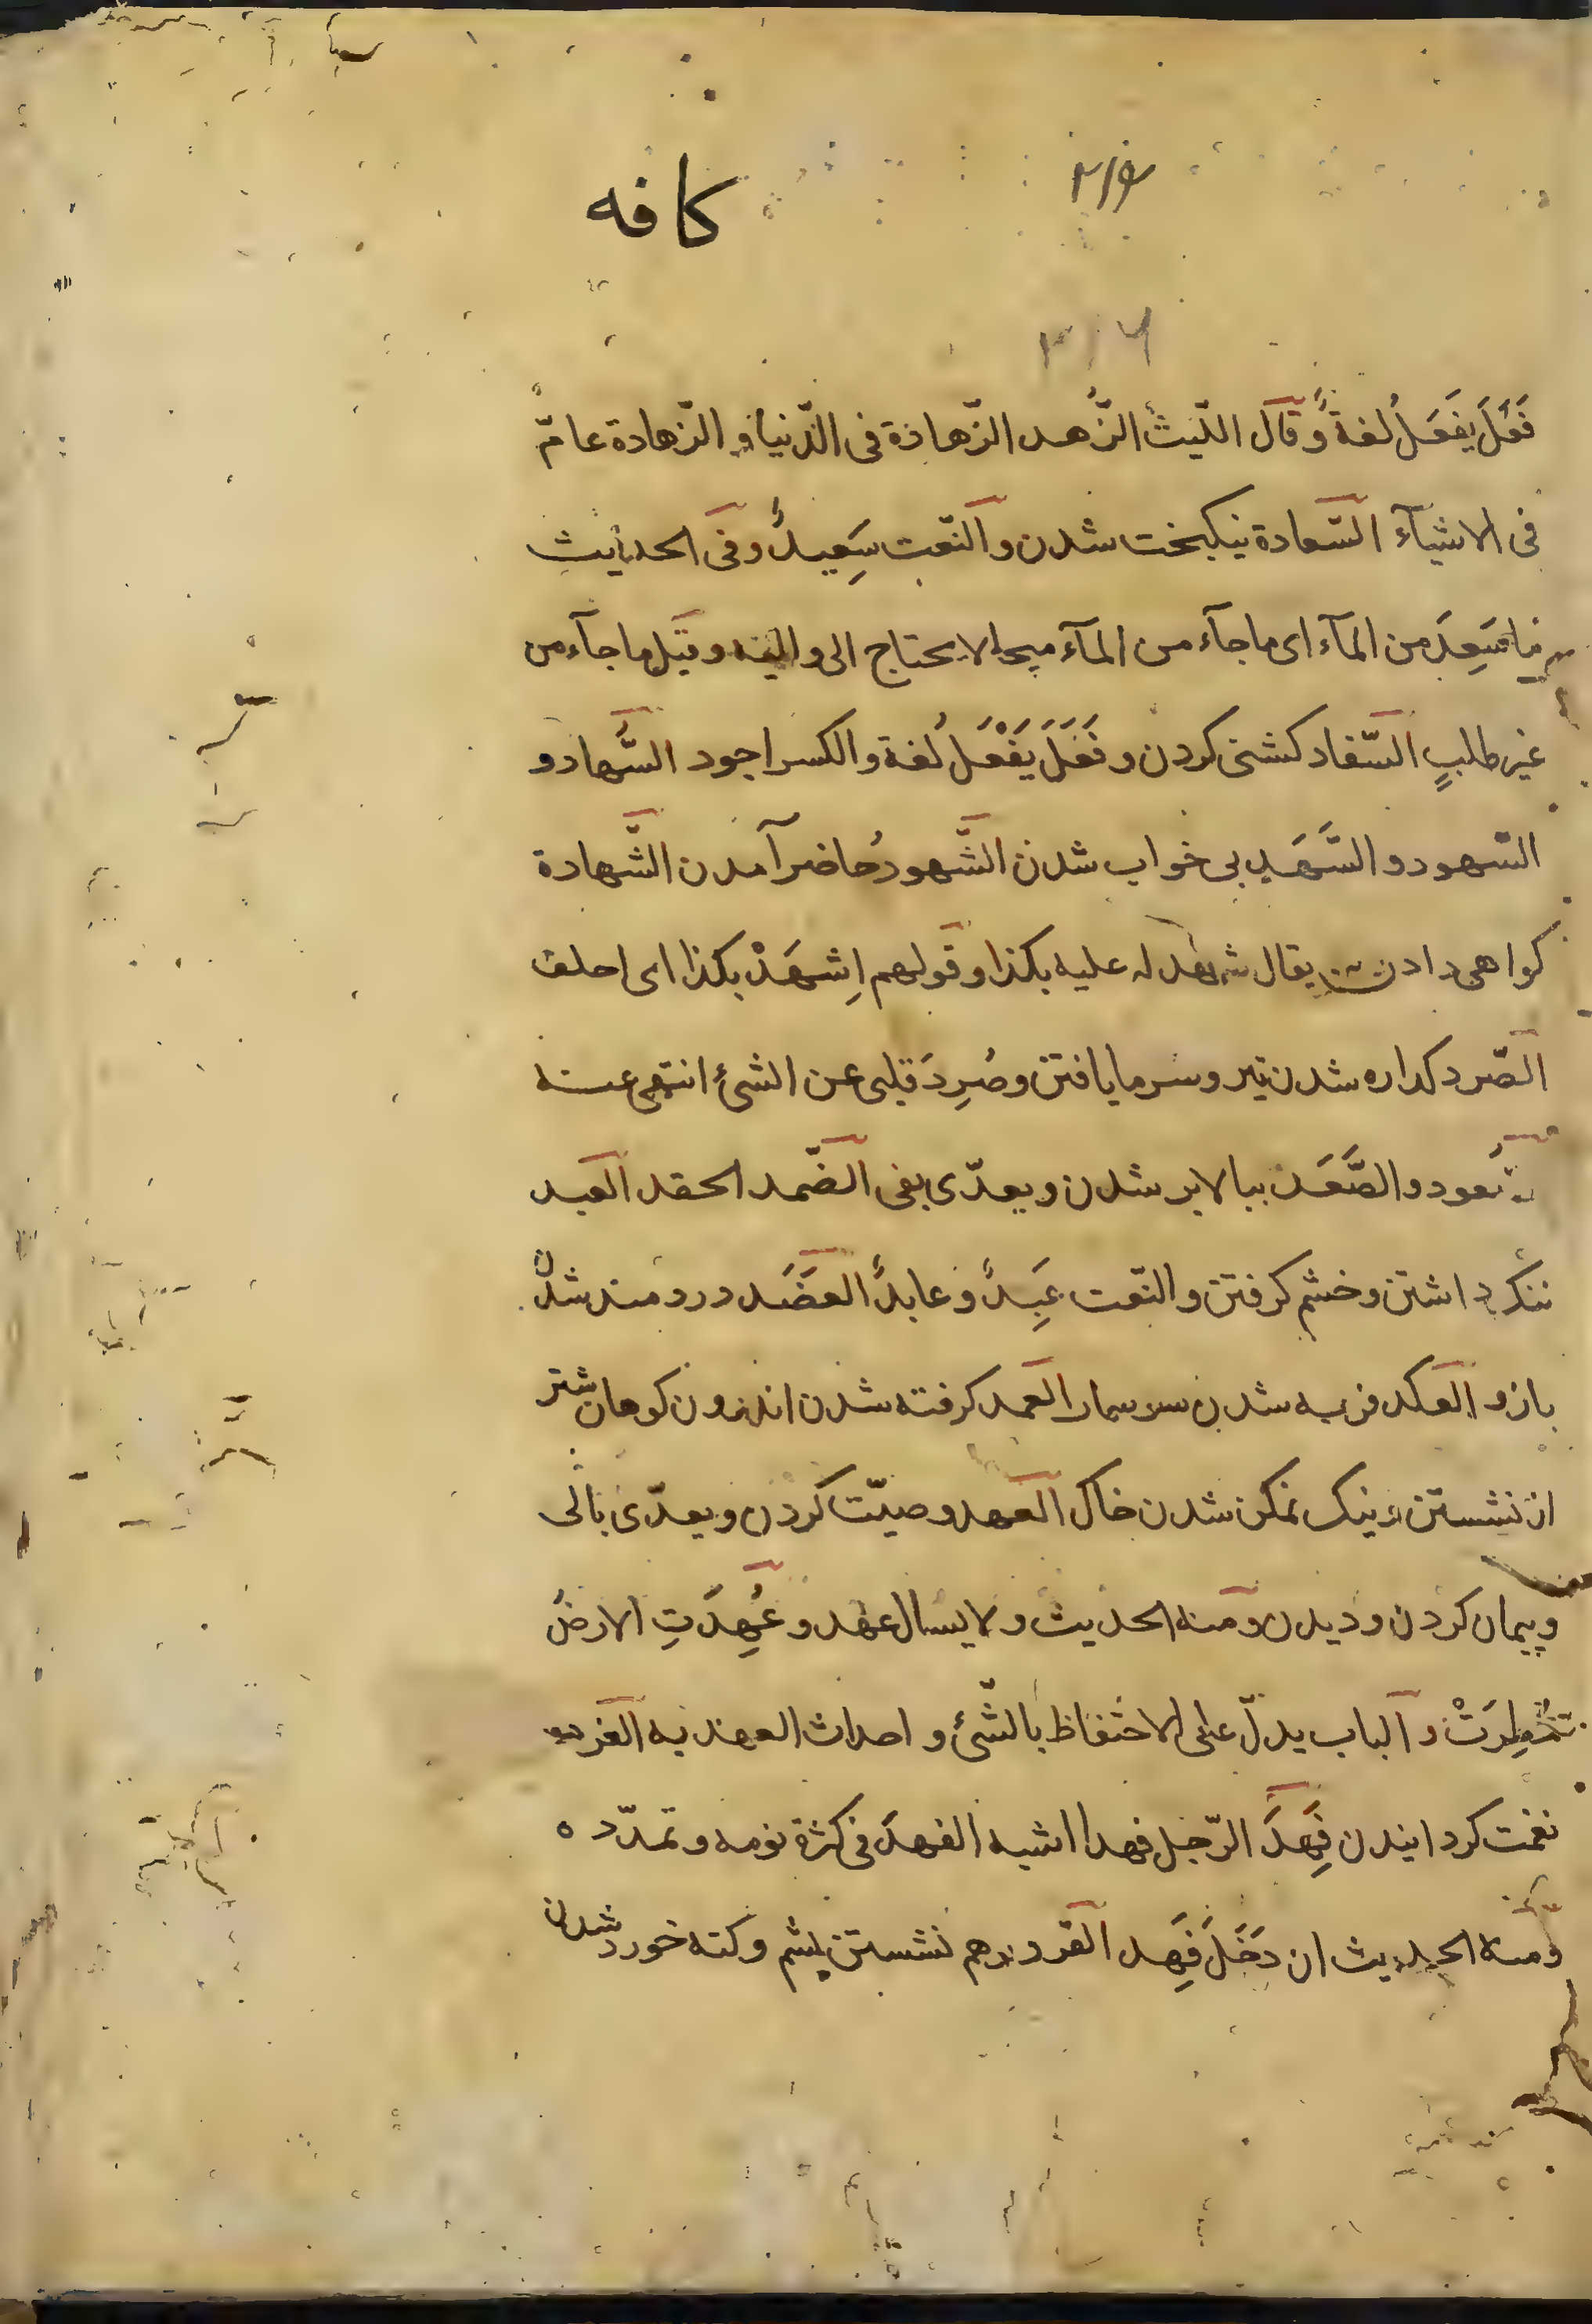 كافه
٣١٦
فَعَلَ يَفعَلُ لُغةً وَقال اللّيثُ الزُّهد الزّهادة فى الدّنيا و الزّهادة عامّ
فى الاشيآء السّعادة نیکبخت شدن والنّعت سَعِيدٌ وفى الحديث
ما سَعِدَ من المآء اى ما جآء من المآء سيحا لا يحتاج الى دالية وقيل ما جآء من
غير طلبٍ السّفاد كشنى كردن و فَعَلَ يَفْعَلُ لُغة والكسر اجود السُّهاد و
السّهود و السَّهَد بى خواب شدن الشُّهودُ حاضر آمدن الشّهادة
كواهى دادن يقال شهد له عليه بكذا وقولهم اِشهَدْ بكذا اى احلف
الصّرد كداره شدن تير و سرما يافتن وصَرِدَ قلبى عن الشئ انتهى عنه
والصَّعَد ببالا بر شدن ويعدّى بفى الضّمد الحقد العبد
ننك داشتن و خشم كرفتن و النّعت عَبِدٌ و عابدٌ العَضَد دردمند شدن
بازو العكد فربه شدن سوسمار العمد كرفته شدن اندرون كوهان شتر
از نشستن و نيک نمكن شدن خاک العهد وصيّت كردن و يعدّى بالى
و پيمان كردن و ديدن ومنه الحديث ولا يسال عما عهد و عُهِدَتِ الارضُ
مُطِرَتْ و الباب يدلّ على الاحتفاظ بالشّئ و احداث العهد به الغرد
نغمت كردانيدن فَهِدَ الرّجل فهدا اشبه الفهدَ فى كثرة نومه و تمدّده
ومنه الحديث ان دَخَلَ فَهِد القرد درهم نشستن پشم و كنه خورد شدن